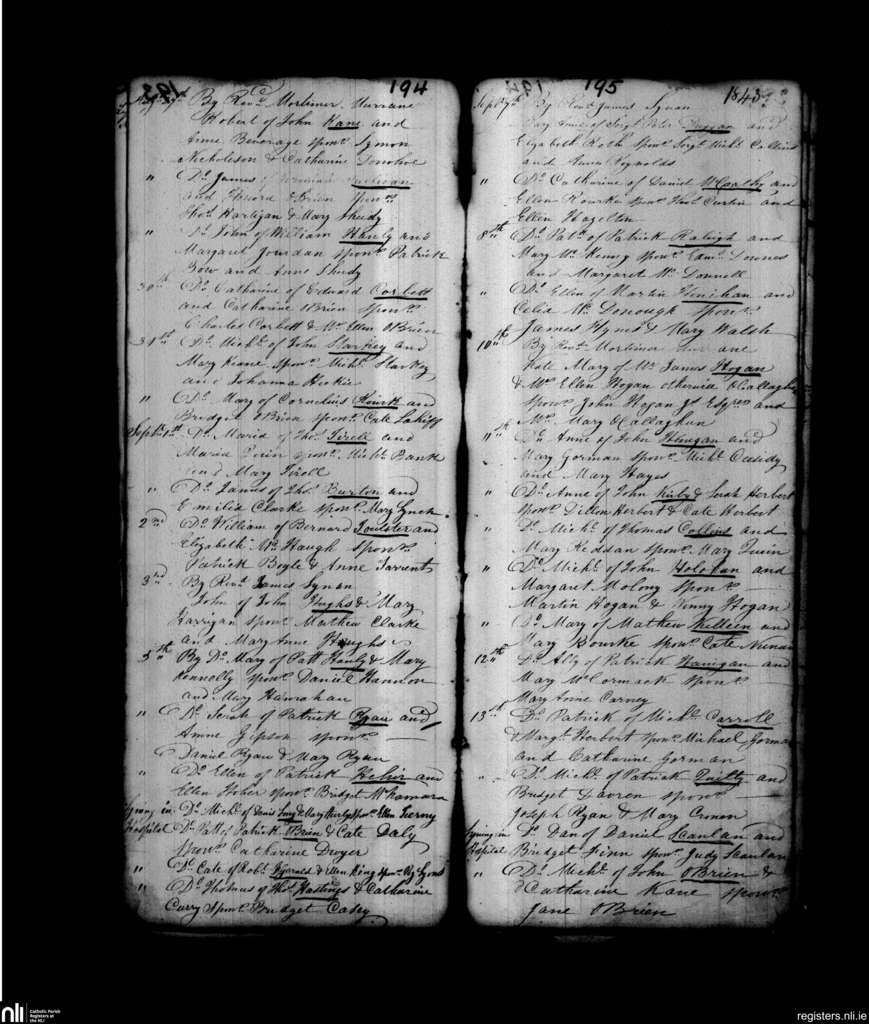 194
By Revd. Mortimer
Robert of John Kane and
Anne Beverage sponrs. Symon
Nicholeson & Catharine Donohoe
" Do. James of Sullivan
and O'Brien Sponrs.
Thos. Hartigan & Mary Sheedy
" Do. John of William Hanly and
Margaret Jourdan sponrs. Patrick
Bow and Anne Sheedy
30th Do. Catharine of Edward Corbett
and Catharine O'Brien sponrs.
Charles Corbett & Mrs. Ellen O'Brien
31st Do. Michl. of John Starkey and
Mary Keane sponrs. Michl. Starkey
and Johanna Hickie
" Do. Mary of Cornelius Hourk and
Bridget O'Brien sponrs. Cate
Septbr. 1st Do. Maria of Thos. Tirell and
Maria sponrs. Michl. Bank
and Mary Tirell
" Do. James of Thos. Burton and
Emilia Clarke sponrs. Mary Lynch
2nd Do. William of Bernard and
Elizabeth Mc.Haugh sponrs.
Patrick Boyle & Anne
3rd By Revd. James Synan
John of John Hughs & Mary
Harrigan sponrs. Mathew Clarke
and Mary Anne Hughs
5th By Do. Mary of Patt Hanly & Mary
Kennelly sponrs. Daniel Hannon
and Mary Hanrahan
" Do. Sarah of Patrick Ryan and
Anne Gipson sponrs.
Daniel Ryan & Mary Ryan
" Do. Ellen of Patrick and
Ellen sponrs. Bridget McNamara
Lyning in Do. Michl. of Denis & Mary sponrs. Ellen
Hospital Do. Patt of Patrick O'Brien & Cate Daly
sponrs. Catharine Dwyer
" Do. Cate of Robt. & Ellen King sponrs.
" Do. Thomas of Thos. Hastings & Catharine
Curry sponrs. Bridget Casey
195
1845
Septr. 7th By Revd. James Synan
Mary Anne of Sergt. Peter Duggan and
Elizabeth Roth sponrs. Sergt. Michl. Collins
and Anne Reynolds
" Do. Catharine of Daniel McCarthy and
Ellen Rourke sponrs. Thos. Curtin and
Ellen Hazelton
8th Do. Patk. of Patrick Raleigh and
Mary Mc.Kenny sponrs. Edmd. Downes
and Margaret Mc.Donnell
" Do. Ellen of Martin Honihan and
Celia Mc.Donough sponrs.
James Hynes & Mary Walsh
10th By Revd. Mortimer
Kate Mary of Mr. James Hogan
& Mrs. Ellen Hogan otherwise O'Callaghan
sponrs. John Hogan Jr. Esqre. and
Mrs. Mary O'Callaghan
11th Do. Anne of John and
Mary Gorman sponrs. Michl. Cusidy
and Mary Hayes
" Do. Anne of John Kirby & Sarah Herbert
sponrs. Dillon Herbert & Cate Herbert
" Do. Michl. of Thomas Collins and
Mary Reddan sponrs. Mary Quin
" Do. Michl. of John Holohan and
Margaret Molony sponrs.
Martin Hogan & Honny Hogan
" Do. Mary of Mathew Killeen and
Mary Bourke sponrs. Cate Nunan
12th Do. Ally of Patrick Hanigan and
Mary McCormack sponrs.
Mary Anne Carney
13th Do. Patrick of Michl. Carroll
& Margt. Herbert sponrs. Michael Gorman
and Catharine Gorman
" Do. Michl. of Patrick Quilty and
Bridget Lavren sponrs.
Joseph Ryan & Mary Cronen
Lyning in Do. Dan of Daniel Scanlan and
Hospital Bridget Finn sponrs. Judy Scanlan
" Do. Michl. of John O'Brien &
Catharine Kane sponrs.
Jane O'Brien
nli
Catholic Parish
Registers at
the NLI
registers.nli.ie